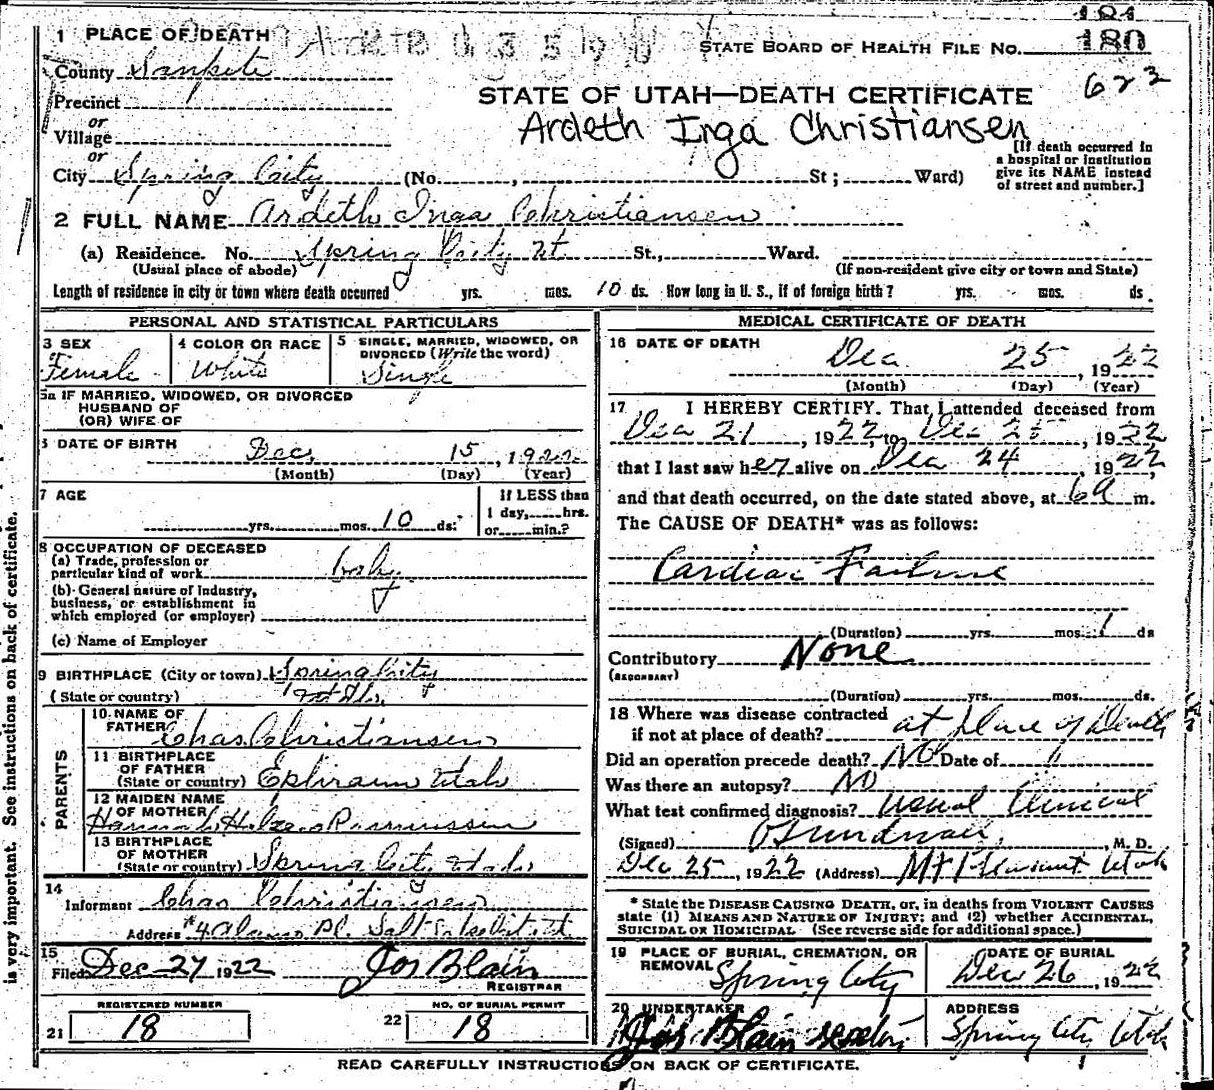 181
1 PLACE OF DEATH
STATE BOARD OF HEALTH FILE No. 180
County Sanpete
622
Precinct
STATE OF UTAH—DEATH CERTIFICATE
or
Village
Ardeth Inga Christiansen
or
[If death occurred in
a hospital or institution
give its NAME instead
of street and number.]
City Spring City (No. , St ; Ward)
2 FULL NAME Ardeth Inga Christiansen
(a) Residence. No. Spring City Ut. St., Ward.
(Usual place of abode) (If non-resident give city or town and State)
Length of residence in city or town where death occurred yrs. mos. 10 ds. How long in U. S., if of foreign birth? yrs. mos. ds.
PERSONAL AND STATISTICAL PARTICULARS
3 SEX 4 COLOR OR RACE 5 SINGLE, MARRIED, WIDOWED, OR
DIVORCED (Write the word)
Female White Single
5a IF MARRIED, WIDOWED, OR DIVORCED
HUSBAND OF
(OR) WIFE OF
6 DATE OF BIRTH Dec, 15, 1922
(Month) (Day) (Year)
7 AGE If LESS than
1 day, hrs.
yrs. mos. 10 ds. or min.?
8 OCCUPATION OF DECEASED
(a) Trade, profession or
particular kind of work baby
(b) General nature of Industry,
business, or establishment in
which employed (or employer)
(c) Name of Employer
9 BIRTHPLACE (City or town) Spring City
(State or country) Utah
PARENTS
10 NAME OF
FATHER Chas. Christiansen
11 BIRTHPLACE
OF FATHER
(State or country) Ephraim Utah
12 MAIDEN NAME
OF MOTHER Hannah Rasmussen
13 BIRTHPLACE
OF MOTHER
(State or country) Spring City Utah
14
Informant Chas Christiansen
Address #4 Alamo Pl. Salt Lake City Ut
15
Filed Dec 27 1922 Jos Blain
REGISTRAR
REGISTERED NUMBER NO. OF BURIAL PERMIT
21 18 22 18
MEDICAL CERTIFICATE OF DEATH
16 DATE OF DEATH Dec 25, 1922
(Month) (Day) (Year)
17 I HEREBY CERTIFY. That I attended deceased from
Dec 21, 1922 to Dec 25, 1922
that I last saw her alive on Dec 24, 1922
and that death occurred, on the date stated above, at 6 a m.
The CAUSE OF DEATH* was as follows:
Cardiac Failure
(Duration) yrs. mos. 1 ds
Contributory None
(SECONDARY)
(Duration) yrs. mos. ds.
18 Where was disease contracted
if not at place of death? at place of Death
Did an operation precede death? No Date of "
Was there an autopsy? No
What test confirmed diagnosis? usual Clinical
(Signed) , M. D.
Dec 25, 1922 (Address) Mt Pleasant Utah
* State the DISEASE CAUSING DEATH, or, in deaths from VIOLENT CAUSES
state (1) MEANS AND NATURE OF INJURY; and (2) whether ACCIDENTAL,
SUICIDAL OR HOMICIDAL (See reverse side for additional space.)
19 PLACE OF BURIAL, CREMATION, OR
REMOVAL Spring City
DATE OF BURIAL
Dec 26, 1922
20 UNDERTAKER ADDRESS
Jos Blain sexton Spring City Utah
READ CAREFULLY INSTRUCTIONS ON BACK OF CERTIFICATE.
is very important. See instructions on back of certificate.